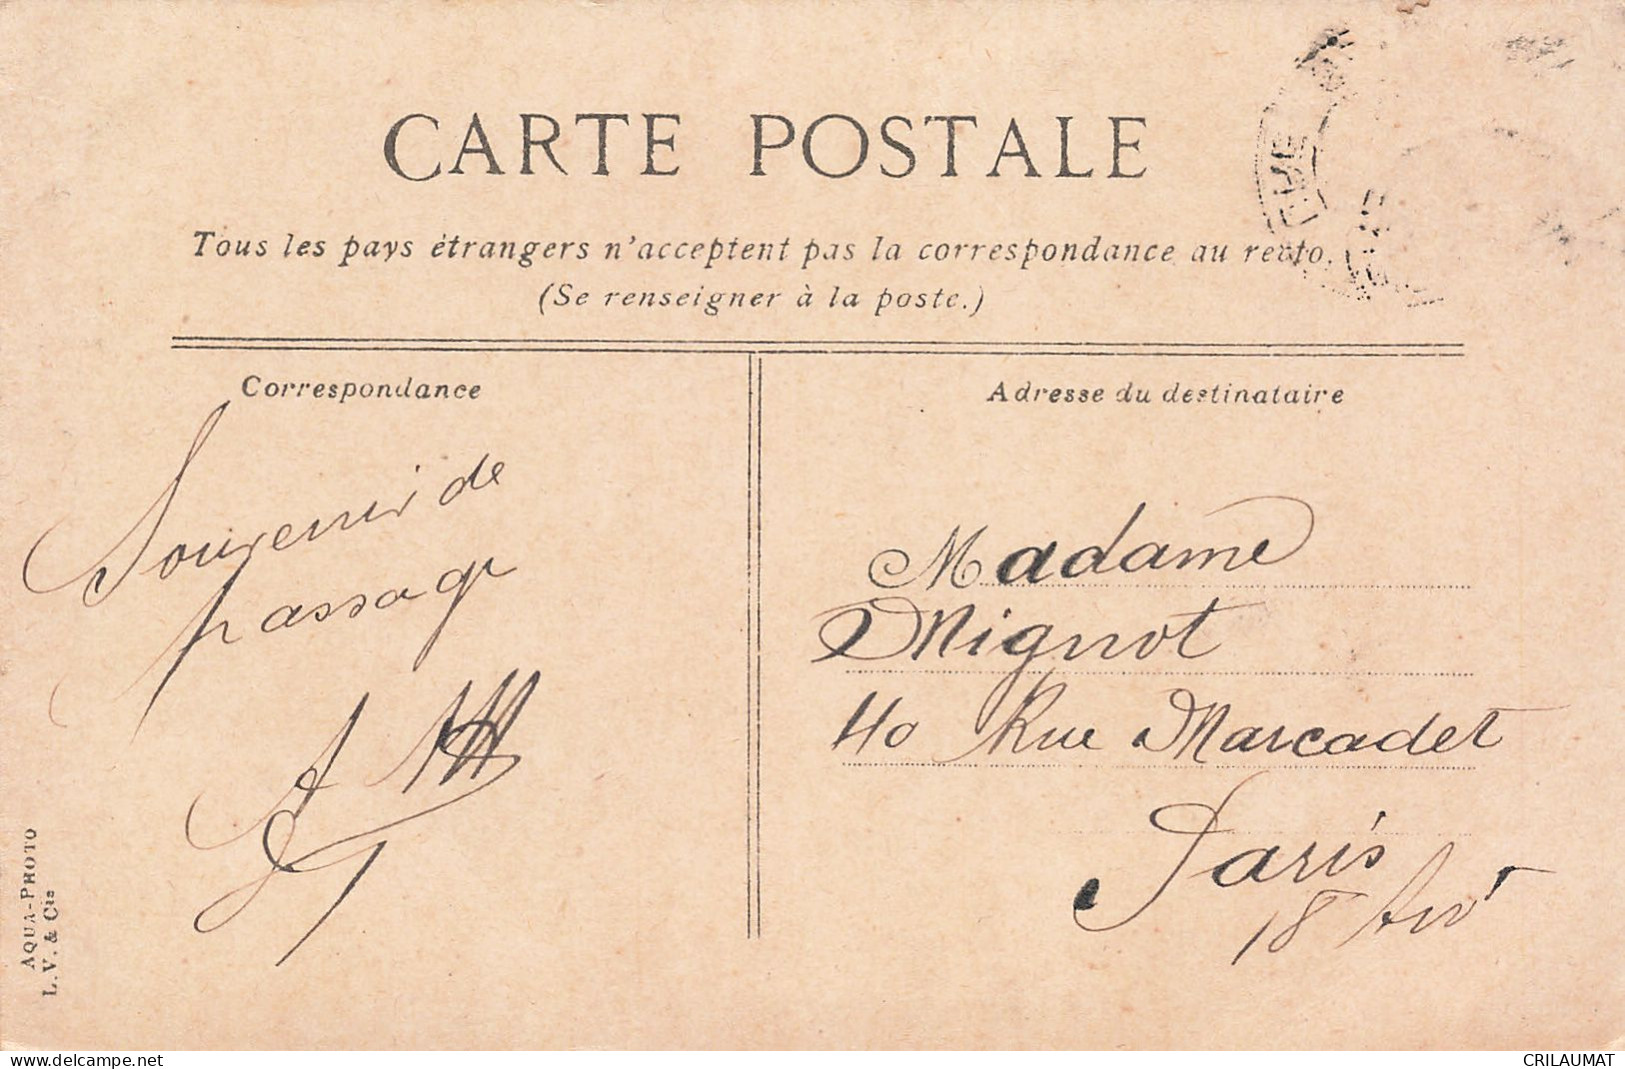 CARTE POSTALE
Tous les pays étrangers n'acceptent pas la correspondance au recto.
(Se renseigner à la poste.)
Correspondance
Adresse du destinataire
Souvenir de
passage
Madame
Mignot
40 Rue Marcadet
Paris
18
AQUA-PHOTO
L. V. & Cie
www.delcampe.net
CRILAUMAT